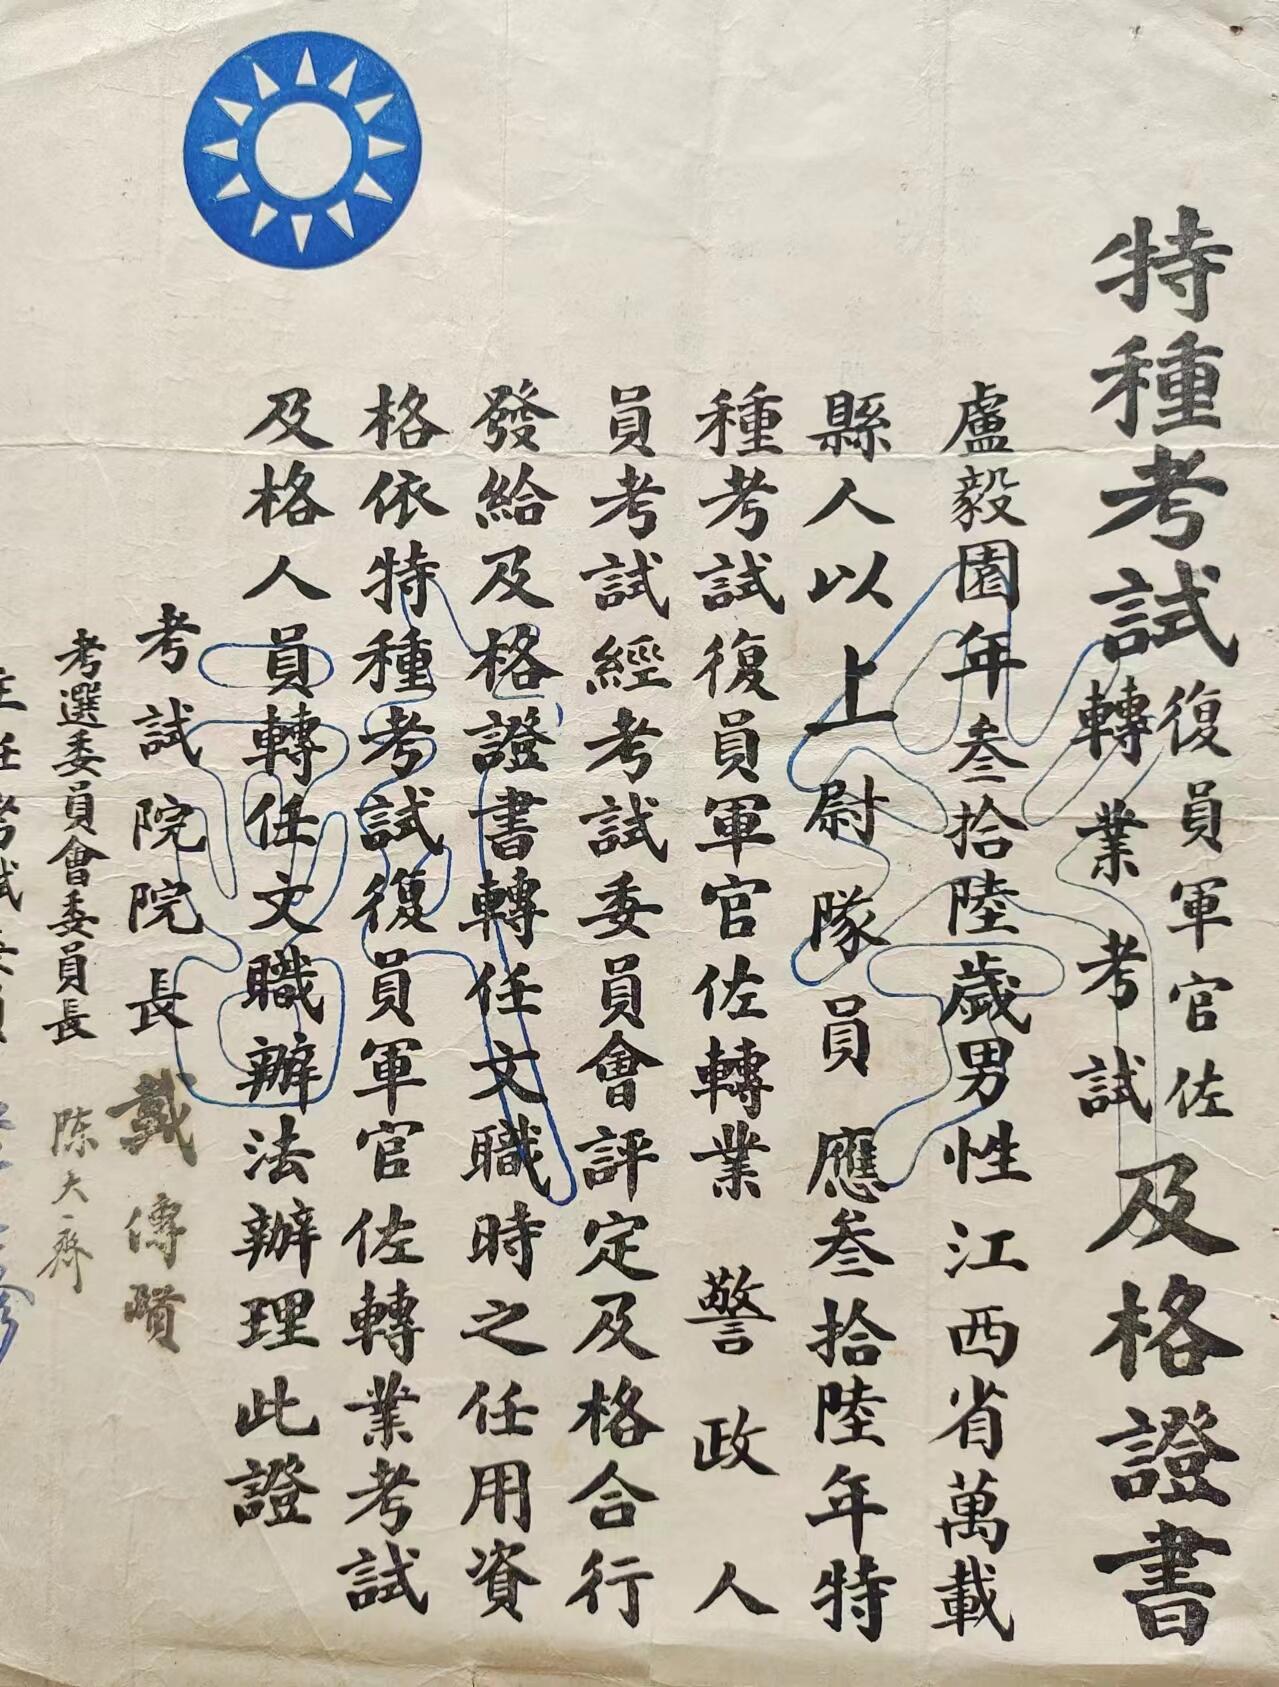 特種考試復員軍官佐轉業考試及格證書
盧毅園年叁拾陸歲男性江西省萬載
縣人以上尉隊員應叁拾陸年特
種考試復員軍官佐轉業警政人
員考試經考試委員會評定及格合行
發給及格證書轉任文職時之任用資
格依特種考試復員軍官佐轉業考試
及格人員轉任文職辦法辦理此證
考試院院長戴傳賢
考選委員會委員長陈大齊